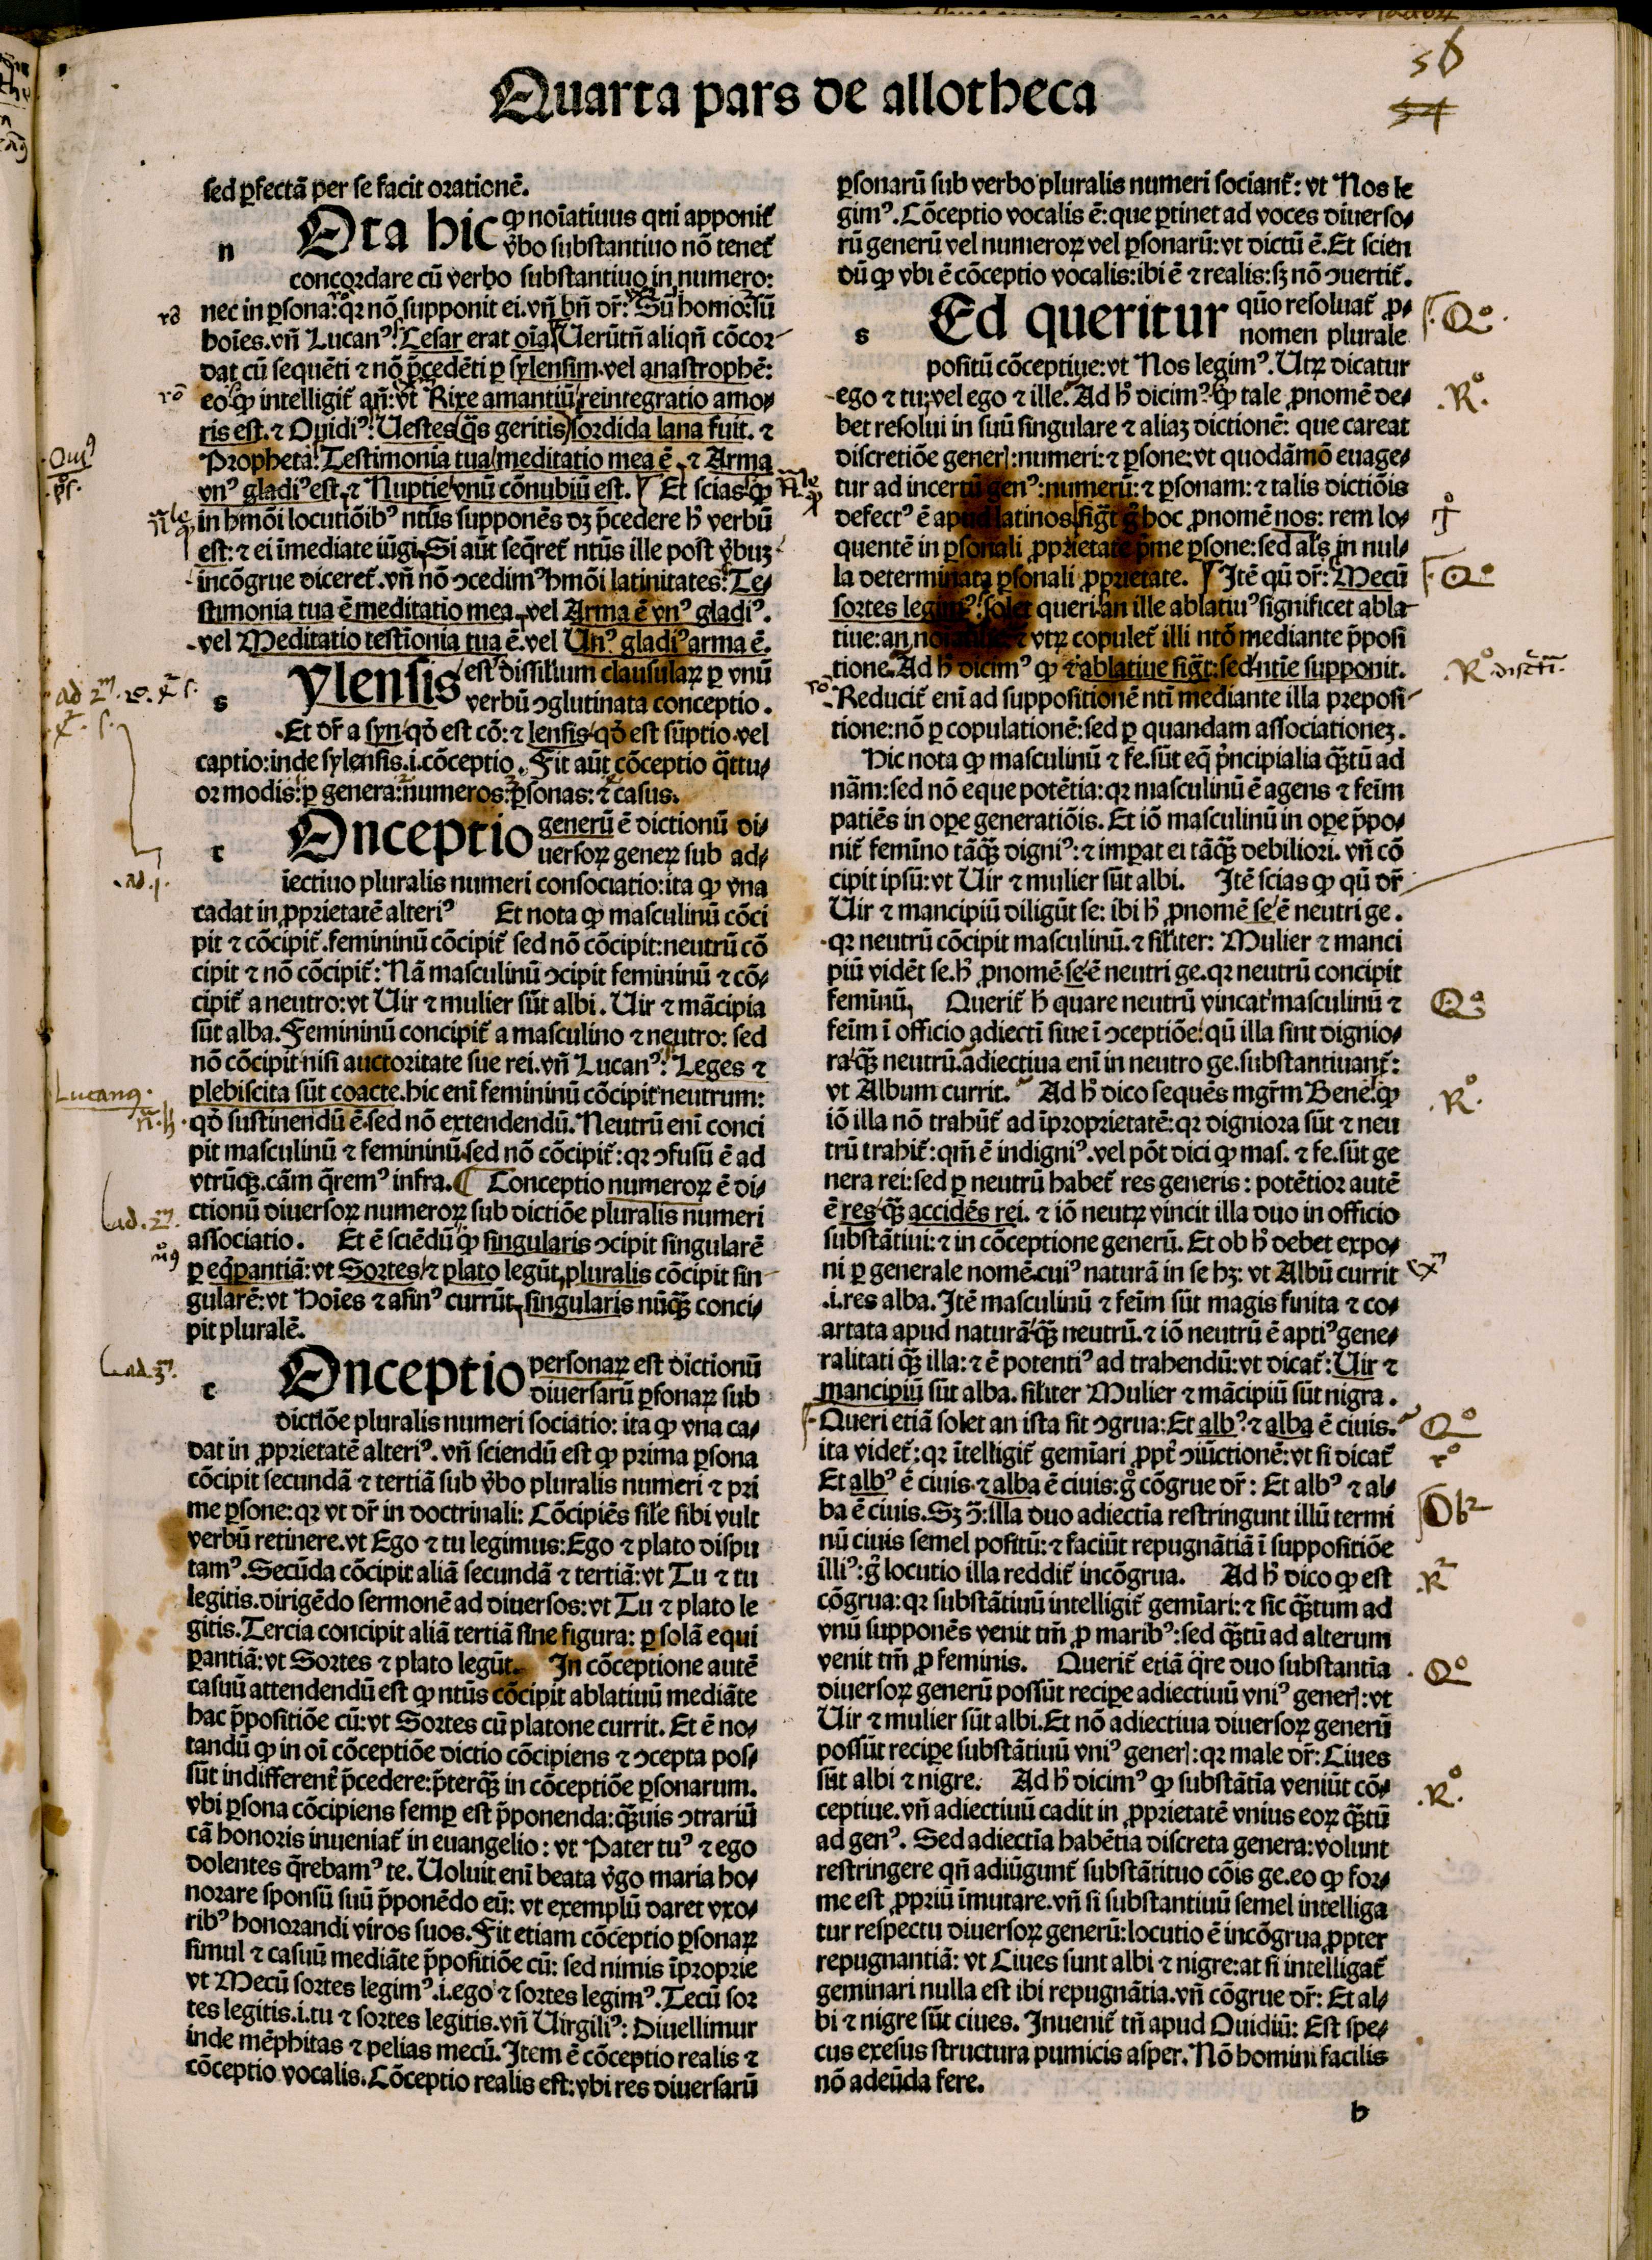 Quarta pars de allotheca
56
54
sed ꝑfectã per se facit orationẽ.
n Ota hic ꝙ noĩatiuus qñ apponit̃
v̾bo substantiuo nõ tenet̃
concordare cũ verbo substantiuo in numero:
nec in ꝑsona: qꝛ nõ supponit ei. vñ bñ dr̃: Sũ homo: sũ
hoĩes. vñ Lucanꝰ: Cesar erat oĩa. Uerũtñ aliqñ cõcor
dat cũ sequẽti ⁊ nõ p̃cedẽti ꝑ sylensim. vel anastrophẽ:
eo ꝙ intelligit̃ añ: vt Rixe amantiũ reintegratio amo-
ris est. ⁊ Ouidiꝰ: Uestes q̃s geritis sordida lana fuit. ⁊
Propheta: Testimonia tua meditatio mea ẽ. ⁊ Arma
vnꝰ gladiꝰ est. ⁊ Nuptie vnũ cõnubiũ est. Et scias ꝙ
in hmõi locutiõibꝰ ntũs supponẽs dꝫ p̃cedere h̾ verbũ
est: ⁊ ei ĩmediate iũgi. Si aũt seq̃ret̃ ntũs ille post v̾buꝫ
incõgrue diceret̃. vñ nõ ↄcedimꝰ hmõi latinitates: Te-
stimonia tua ẽ meditatio mea. vel Arma ẽ vnꝰ gladiꝰ.
vel Meditatio testionia tua ẽ. vel Unꝰ gladiꝰ arma ẽ.
s Ylensis est dissiłium clausulaꝝ ꝑ vnũ
verbũ ↄglutinata conceptio.
Et dr̃ a syn qd̾ est cõ: ⁊ lensis qd̾ est sũptio. vel
captio: inde sylensis. i. cõceptio. Fit aũt cõceptio q̃ttu-
or modis: ꝑ genera: numeros: ꝑsonas: ⁊ casus.
c Onceptio generũ ẽ dictionũ di-
uersoꝝ geneꝝ sub ad-
iectiuo pluralis numeri consociatio: ita ꝙ vna
cadat in ꝓprietatẽ alteriꝰ Et nota ꝙ masculinũ cõci
pit ⁊ cõcipit̃. femininũ cõcipit̃ sed nõ cõcipit: neutrũ cõ
cipit ⁊ nõ cõcipit̃: Nã masculinũ ↄcipit femininũ ⁊ cõ-
cipit̃ a neutro: vt Uir ⁊ mulier sũt albi. Uir ⁊ mãcipia
sũt alba. Femininũ concipit̃ a masculino ⁊ neutro: sed
nõ cõcipit nisi auctoritate sue rei. vñ Lucanꝰ: Leges ⁊
plebiscita sũt coacte. hic eni femininũ cõcipit neutrum:
qd̾ sustinendũ ẽ. sed nõ extendendũ. Neutrũ eni conci
pit masculinũ ⁊ femininũ. sed nõ cõcipit̃: qꝛ ↄfusũ ẽ ad
vtrũqꝫ. cãm q̃remꝰ infra. ¶ Conceptio numeroꝝ ẽ di-
ctionũ diuersoꝝ numeroꝝ sub dictiõe pluralis numeri
associatio. Et ẽ sciẽdũ ꝙ singularis ↄcipit singularẽ
ꝑ eq̃ꝑantiã: vt Sortes ⁊ plato legũt. pluralis cõcipit sin
gularẽ: vt Hoĩes ⁊ asinꝰ currũt. singularis nũq̃ꝫ conci-
pit pluralẽ.
c Onceptio personaꝝ est dictionũ
diuersarũ ꝑsonaꝝ sub
dictiõe pluralis numeri sociatio: ita ꝙ vna ca-
dat in ꝓprietatẽ alteriꝰ. vñ sciendũ est ꝙ prima ꝑsona
cõcipit secundã ⁊ tertiã sub v̾bo pluralis numeri ⁊ pri
me ꝑsone: qꝛ vt dr̃ in doctrinali: Cõcipiẽs siłe sibi vult
verbũ retinere. vt Ego ⁊ tu legimus: Ego ⁊ plato dispu
tamꝰ. Secũda cõcipit aliã secundã ⁊ tertiã: vt Tu ⁊ tu
legitis. dirigẽdo sermonẽ ad diuersos: vt Tu ⁊ plato le
gitis. Tercia concipit aliã tertiã sine figura: ꝑ solã equi
ꝑantiã: vt Sortes ⁊ plato legũt. In cõceptione autẽ
casuũ attendendũ est ꝙ ntũs cõcipit ablatiuũ mediãte
hac p̃positiõe cũ: vt Sortes cũ platone currit. Et ẽ no-
tandũ ꝙ in oĩ cõceptiõe dictio cõcipiens ⁊ ↄcepta pos-
sũt indifferent̃ p̃cedere: p̃terq̃ꝫ in cõceptiõe ꝑsonarum.
vbi ꝑsona cõcipiens semꝑ est p̃ponenda: q̃ꝫuis ↄtrariũ
cã honoris inueniat̃ in euangelio: vt Pater tuꝰ ⁊ ego
dolentes q̃rebamꝰ te. Uoluit eni beata v̾go maria ho-
norare sponsũ suũ p̃ponẽdo eũ: vt exemplũ daret vxo-
ribꝰ honorandi viros suos. Fit etiam cõceptio ꝑsonaꝝ
simul ⁊ casuũ mediãte p̃positiõe cũ: sed nimis ĩproprie
vt Mecũ sortes legimꝰ. i. ego ⁊ sortes legimꝰ. Tecũ sor
tes legitis. i. tu ⁊ sortes legitis. vñ Uirgiliꝰ: Diuellimur
inde mẽphitas ⁊ pelias mecũ. Item ẽ cõceptio realis ⁊
cõceptio vocalis. Cõceptio realis est: vbi res diuersarũ
ꝑsonarũ sub verbo pluralis numeri sociant̃: vt Nos le
gimꝰ. Cõceptio vocalis ẽ: que ꝑtinet ad voces diuerso-
rũ generũ vel numeroꝝ vel ꝑsonarũ: vt dictũ ẽ. Et scien
dũ ꝙ vbi ẽ cõceptio vocalis: ibi ẽ ⁊ realis: sꝫ nõ ↄuertit̃.
s Ed queritur qũo resoluat̃ ꝓ-
nomen plurale
positũ cõceptiue: vt Nos legimꝰ. Utꝝ dicatur
ego ⁊ tu: vel ego ⁊ ille. Ad h̾ dicimꝰ ꝙ tale ꝓnomẽ de-
bet resolui in suũ singulare ⁊ aliaꝫ dictionẽ: que careat
discretiõe generꝭ: numeri: ⁊ ꝑsone: vt quodãmõ euage-
tur ad incertũ genꝰ: numerũ: ⁊ ꝑsonam: ⁊ talis dictiõis
defectꝰ ẽ apud latinos. sig̃t g̊ hoc ꝓnomẽ nos: rem lo-
quentẽ in ꝑsonali ꝓprietate p̃me ꝑsone: sed als̃ in nul-
la determinata ꝑsonali ꝓprietate. Itẽ qũ dr̃: Mecũ
sortes legimꝰ: solet queri an ille ablatiuꝰ significet abla
tiue: an ⁊ vtꝝ copulet̃ illi ntõ mediante p̃posi
tione. Ad h̾ dicimꝰ ꝙ ⁊ ablatiue sig̃t: sed ntĩe supponit.
Reducit̃ eni ad suppositionẽ nti mediante illa preposi
tione: nõ ꝑ copulationẽ: sed ꝑ quandam associationeꝫ.
Hic nota ꝙ masculinũ ⁊ fe. sũt eq̃ p̾ncipialia q̃ꝫtũ ad
nãm: sed nõ eque potẽtia: qꝛ masculinũ ẽ agens ⁊ feĩm
patiẽs in oꝑe generatiõis. Et iõ masculinũ in oꝑe p̃po-
nit̃ feminĩo tãq̃ꝫ digniꝰ: ⁊ imꝑat ei tãq̃ꝫ debiliori. vñ cõ
cipit ipsũ: vt Uir ⁊ mulier sũt albi. Itẽ scias ꝙ qũ dr̃
Uir ⁊ mancipiũ diligũt se: ibi h̾ ꝓnomẽ se ẽ neutri ge.
qꝛ neutrũ cõcipit masculinũ. ⁊ siłiter: Mulier ⁊ manci
piũ vidẽt se. h̾ ꝓnomẽ se ẽ neutri ge. qꝛ neutrũ concipit
feminũ. Querit̃ h̾ quare neutrũ vincat masculinũ ⁊
feĩm ĩ officio adiecti siue ĩ ↄceptiõe: qũ illa sint dignio-
ra q̃ꝫ neutrũ. adiectiua eni in neutro ge. substantiuant̃:
vt Album currit. Ad h̾ dico sequẽs mgr̃m Benẽ: ꝙ
iõ illa nõ trahũt̃ ad ĩproprietatẽ: qꝛ digniora sũt ⁊ neu
trũ trahit̃: qm̃ ẽ indigniꝰ. vel põt dici ꝙ mas. ⁊ fe. sũt ge
nera rei: sed ꝑ neutrũ habet̃ res generis: potẽtior autẽ
ẽ res q̃ꝫ accidẽs rei. ⁊ iõ neutꝝ vincit illa duo in officio
substãtiui: ⁊ in cõceptione generũ. Et ob h̾ debet expo-
ni ꝑ generale nomẽ. cuiꝰ naturã in se hꝫ: vt Albũ currit
.i. res alba. Itẽ masculinũ ⁊ feĩm sũt magis finita ⁊ co-
artata apud naturã q̃ꝫ neutrũ. ⁊ iõ neutrũ ẽ aptiꝰ gene-
ralitati q̃ꝫ illa: ⁊ ẽ potentiꝰ ad trahendũ: vt dicat̃: Uir ⁊
mancipiũ sũt alba. siłiter Mulier ⁊ mãcipiũ sũt nigra.
Queri etiã solet an ista sit ↄgrua: Et albꝰ ⁊ alba ẽ ciuis.
ita videt̃: qꝛ ĩtelligit̃ gemĩari ꝓpt̃ ↄiũctionẽ: vt si dicat̃
Et albꝰ ẽ ciuis. ⁊ alba ẽ ciuis: g̊ cõgrue dr̃: Et albꝰ ⁊ al-
ba ẽ ciuis. Sꝫ ↄ̃: illa duo adiectia restringunt illũ termi
nũ ciuis semel positũ: ⁊ faciũt repugnãtiã ĩ suppositiõe
illiꝰ: g̊ locutio illa reddit̃ incõgrua. Ad h̾ dico ꝙ est
cõgrua: qꝛ substãtiuũ intelligit̃ gemĩari: ⁊ sic q̃ꝫtum ad
vnũ supponẽs venit tm̃ ꝓ maribꝰ: sed q̃ꝫtũ ad alterum
venit tm̃ ꝓ feminis. Querit̃ etiã q̃re duo substantĩa
diuersoꝝ generũ possũt reciꝑe adiectiuũ vniꝰ generꝭ: vt
Uir ⁊ mulier sũt albi. Et nõ adiectiua diuersoꝝ generũ
possũt reciꝑe substãtiuũ vniꝰ generꝭ: qꝛ male dr̃: Ciues
sũt albi ⁊ nigre. Ad h̾ dicimꝰ ꝙ substãtĩa veniũt cõ-
ceptiue. vñ adiectiuũ cadit in ꝓprietatẽ vnius eoꝝ q̃ꝫtũ
ad genꝰ. Sed adiectĩa habẽtia discreta genera: volunt
restringere qñ adiũgunt̃ substãtituo cõis ge. eo ꝙ for-
me est ꝓpriũ ĩmutare. vñ si substantiuũ semel intelliga
tur respectu diuersoꝝ generũ: locutio ẽ incõgrua ꝓpter
repugnantiã: vt Ciues sunt albi ⁊ nigre: at si intelligat̃
geminari nulla est ibi repugnãtia. vñ cõgrue dr̃: Et al-
bi ⁊ nigre sũt ciues. Inuenit̃ tñ apud Ouidiũ: Est spe-
cus exesus structura pumicis asper. Nõ homini facilis
nõ adeũda fere.
b
Lucanꝰ.
ad. 2m.
ad. 3m.
Qo
Ro
Qo
Ro
Qo
Ro
Qo
Qo
Ro